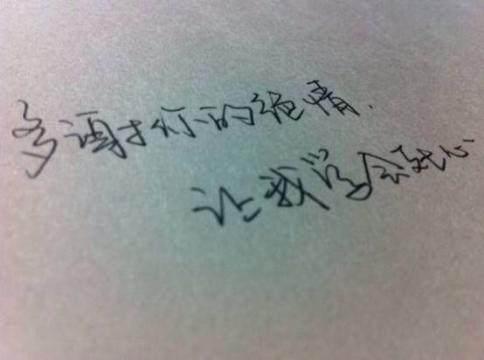 多谢你的绝情.
让我学会死心